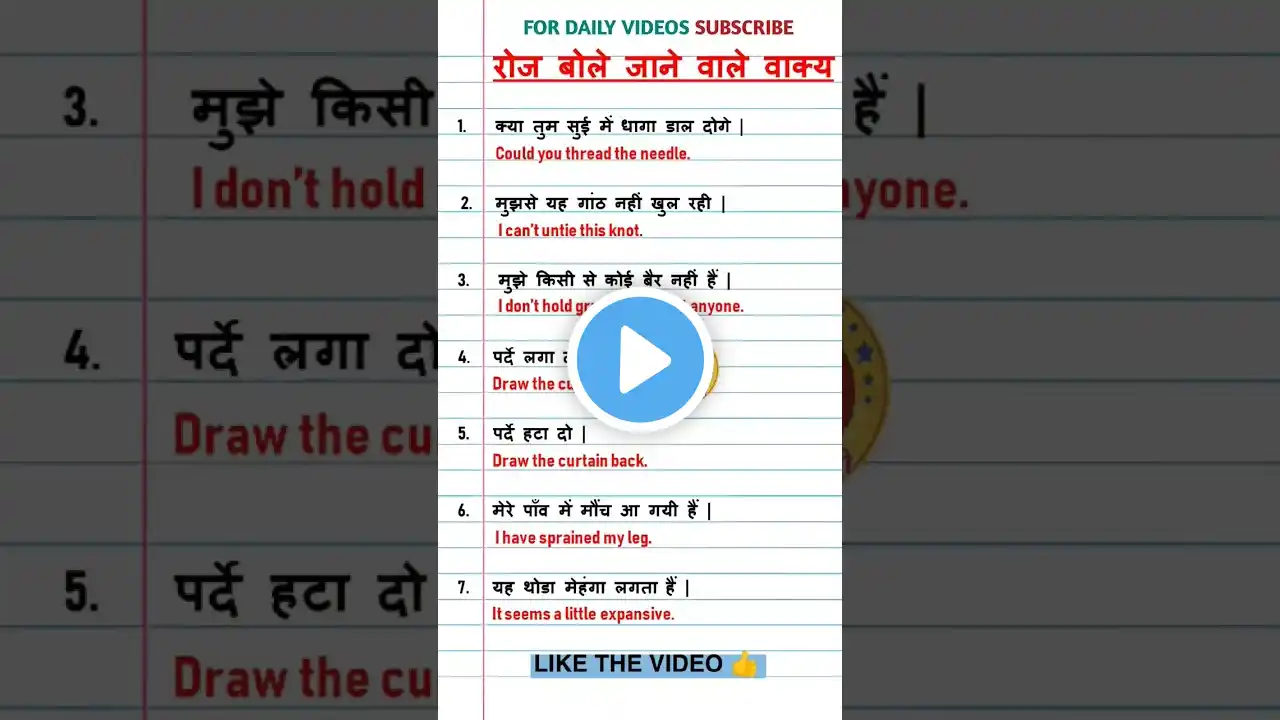 FOR DAILY VIDEOS SUBSCRIBE
रोज बोले जाने वाले वाक्य
1. क्या तुम सुई में धागा डाल दोगे |
Could you thread the needle.
2. मुझसे यह गांठ नहीं खुल रही |
I can't untie this knot.
3. मुझे किसी से कोई बैर नहीं हैं |
I don't hold anyone.
4. पर्दे लगा
Draw the
5. पर्दे हटा दो |
Draw the curtain back.
6. मेरे पाँव में मौंच आ गयी हैं |
I have sprained my leg.
7. यह थोडा मेहंगा लगता हैं |
It seems a little expansive.
LIKE THE VIDEO 👍
3. मुझे किसी हैं |
I don't hold
4. पर्दे लगा
Draw the
5. पर्दे हटा दो
Draw the